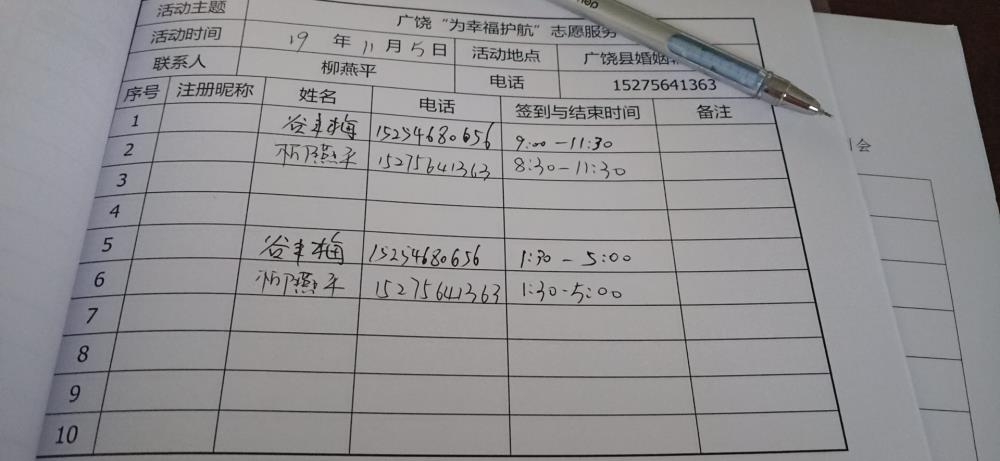 活动主题 广饶“为幸福护航”志愿服务
活动时间 19 年 11 月 5 日 活动地点 广饶县婚姻
联系人 柳燕平 电话 15275641363
序号 注册昵称 姓名 电话 签到与结束时间 备注
1 谷丰梅 15254680656 9:00-11:30
2 柳燕平 15275641363 8:30-11:30
3
4
5 谷丰梅 15254680656 1:30-5:00
6 柳燕平 15275641363 1:30-5:00
7
8
9
10